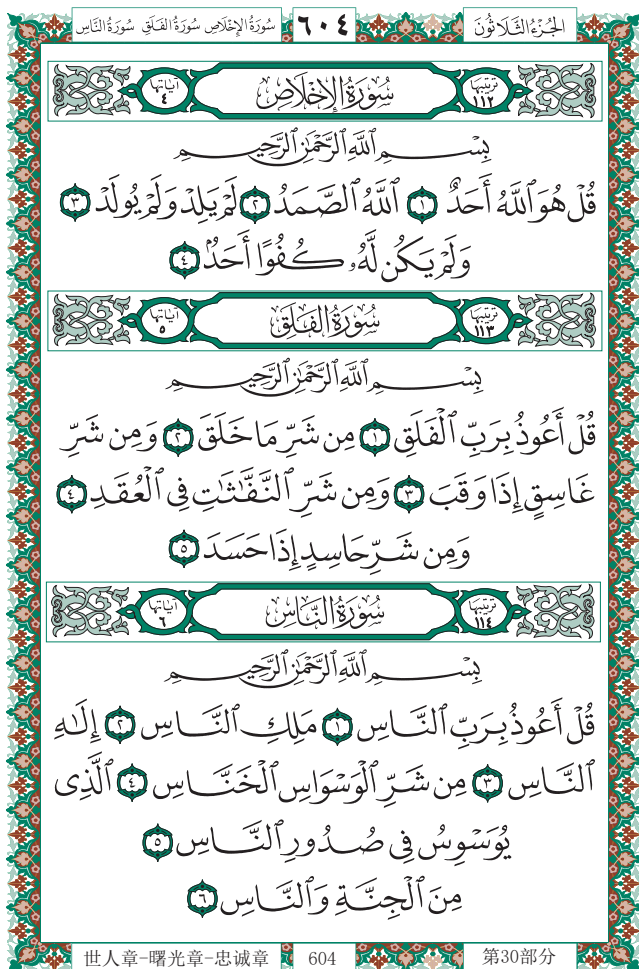 الجُزْءُ الثَّلَاثُونَ ٦٠٤ سُورَةُ الإِخْلَاصِ سُورَةُ الفَلَقِ سُورَةُ النَّاسِ
ترتيبها ١١٢ سُورَةُ الإِخْلَاصِ آياتها ٤
بِسْمِ ٱللَّهِ ٱلرَّحْمَٰنِ ٱلرَّحِيمِ
قُلْ هُوَ ٱللَّهُ أَحَدٌ ١ ٱللَّهُ ٱلصَّمَدُ ٢ لَمْ يَلِدْ وَلَمْ يُولَدْ ٣
وَلَمْ يَكُن لَّهُۥ كُفُوًا أَحَدٌۢ ٤
ترتيبها ١١٣ سُورَةُ الفَلَقِ آياتها ٥
بِسْمِ ٱللَّهِ ٱلرَّحْمَٰنِ ٱلرَّحِيمِ
قُلْ أَعُوذُ بِرَبِّ ٱلْفَلَقِ ١ مِن شَرِّ مَا خَلَقَ ٢ وَمِن شَرِّ
غَاسِقٍ إِذَا وَقَبَ ٣ وَمِن شَرِّ ٱلنَّفَّٰثَٰتِ فِى ٱلْعُقَدِ ٤
وَمِن شَرِّ حَاسِدٍ إِذَا حَسَدَ ٥
ترتيبها ١١٤ سُورَةُ النَّاسِ آياتها ٦
بِسْمِ ٱللَّهِ ٱلرَّحْمَٰنِ ٱلرَّحِيمِ
قُلْ أَعُوذُ بِرَبِّ ٱلنَّاسِ ١ مَلِكِ ٱلنَّاسِ ٢ إِلَٰهِ
ٱلنَّاسِ ٣ مِن شَرِّ ٱلْوَسْوَاسِ ٱلْخَنَّاسِ ٤ ٱلَّذِى
يُوَسْوِسُ فِى صُدُورِ ٱلنَّاسِ ٥
مِنَ ٱلْجِنَّةِ وَٱلنَّاسِ ٦
世人章-曙光章-忠诚章 604 第30部分